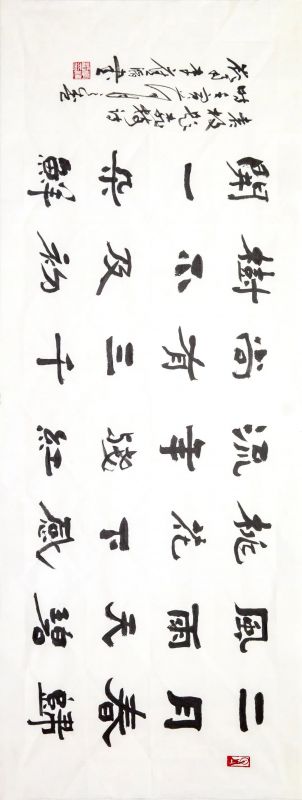 二月春歸
風雨天碧
桃花下感
流年殘紅
尚有三千
樹不及初
開一朵鮮
袁枚 樹詩